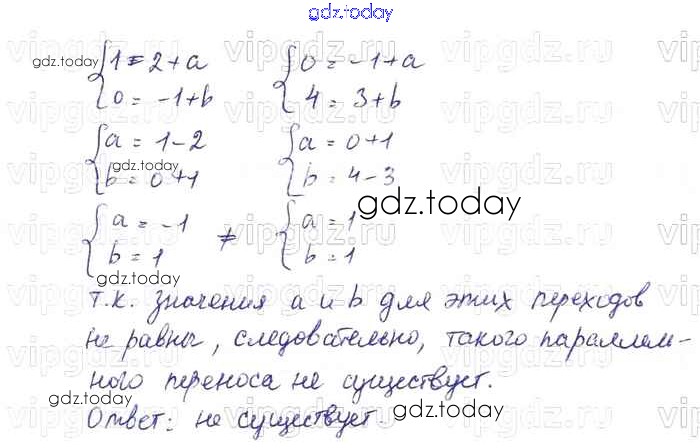 gdz.today
1 = 2 + a
0 = -1 + b
0 = -1 + a
4 = 3 + b
gdz.today
a = 1 - 2
b = 0 + 1
a = 0 + 1
b = 4 - 3
gdz.today
a = -1
b = 1
≠
a = 1
b = 1
gdz.today
gdz.today
т.к. значения a и b для этих переходов
не равны, следовательно, такого параллель-
ного переноса не существует.
Ответ: не существует.
gdz.today
vipgdz.ru